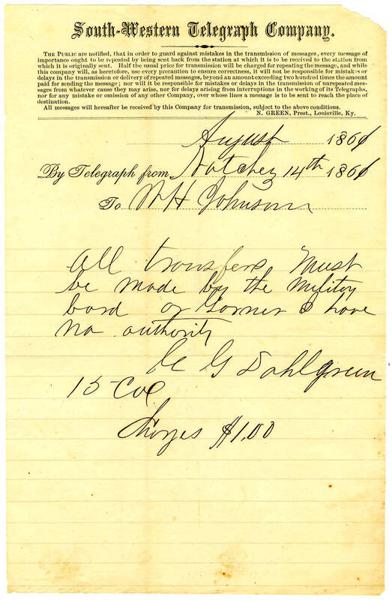 South-Western Telegraph Company.
THE PUBLIC are notified, that in order to guard against mistakes in the transmission of messages, every message of
importance ought to be repeated by being sent back from the station at which it is to be received to the station from
which it is originally sent. Half the usual price for transmission will be charged for repeating the message, and while
this company will, as heretofore, use every precaution to ensure correctness, it will not be responsible for mistakes or
delays in the transmission or delivery of repeated messages, beyond an amount exceeding two hundred times the amount
paid for sending the message; nor will it be responsible for mistakes or delays in the transmission of unrepeated mes-
sages from whatever cause they may arise, nor for delays arising from interruptions in the working of its Telegraphs,
nor for any mistake or omission of any other Company, over whose lines a message is to be sent to reach the place of
destination.
All messages will hereafter be received by this Company for transmission, subject to the above conditions.
N. GREEN, Prest., Louisville, Ky.
August 1861
By Telegraph from Natchez 14th 1861
To W H Johnson
All transfers Must
be made by the Military
bord or Gorner I have
no authority
C G Dahlgreen
15 Col
Chorges $1.00